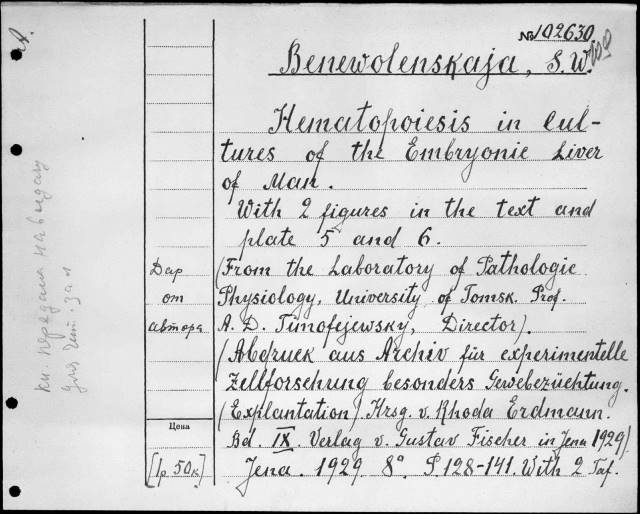 №102630
Benewolenskaja, S.W.
Hematopoiesis in Cul-
tures of the Embryonie Liver
of Man.
With 2 figures in the text and
plate 5 and 6.
Дар
от
автора
(From the Laboratory of Pathologie
Physiology, University of Tomsk. Prof.
A. D. Timofejewsky, Director).
(Abdruck aus Archiv für experimentelle
Zellforschung besonders Gewebezüchtung.
(Explantation). Hrsg. v. Rhoda Erdmann.
Bd. IX. Verlag v. Gustav Fischer in Jena 1929)
Jena. 1929. 8°. P. 128-141. With 2 Taf.
Цена
[1р. 50к]
Кн. передана на выдачу
для чит. зал